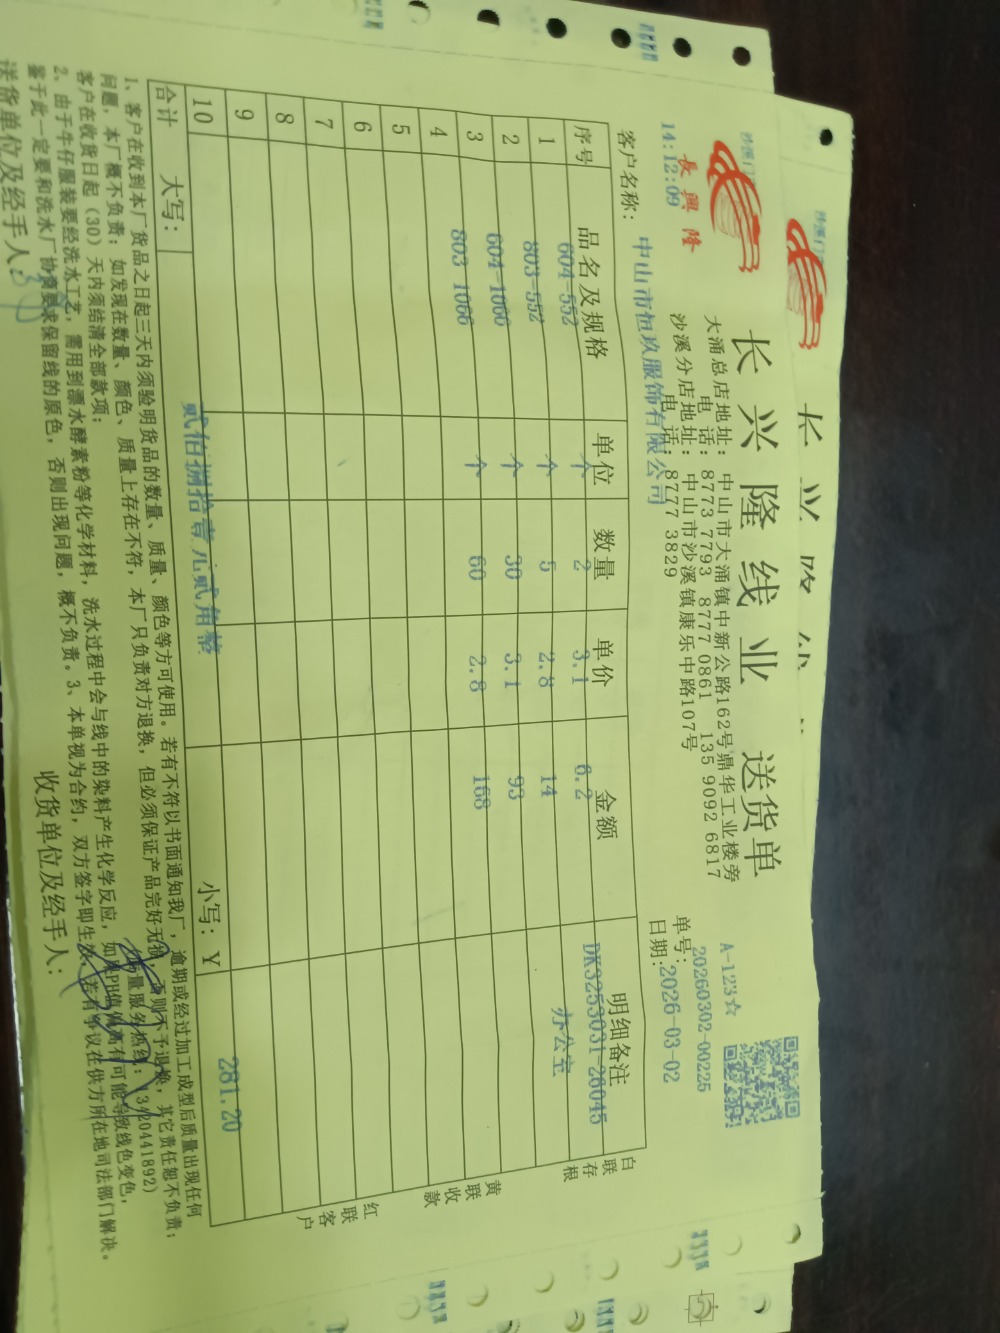 长兴隆线业 送货单
長興隆
大涌总店地址：中山市大涌镇中新公路162号鼎华工业楼旁
电 话：8773 7793 8777 0861 135 9092 6817
沙溪分店地址：中山市沙溪镇康乐中路107号
电 话：8777 3829
A-123☆
单号：20260302-00225
日期：2026-03-02
14:12:09
客户名称：中山市恒玖服饰有限公司
序号 品名及规格 单位 数量 单价 金额 明细备注
1 604-552 个 2 3.1 6.2 DK3253031-26045
2 803-552 个 5 2.8 14 办公室
3 604-1066 个 30 3.1 93
4 803 1066 个 60 2.8 168
5
6
7
8
9
10
合计 大写：贰佰捌拾壹元贰角整 小写：Y 281.20
白联存根
黄联收款
红联客户
1、客户在收到本厂货品之日起三天内须验明货品的数量、质量、颜色等方可使用。若有不符以书面通知我厂，逾期或经过加工成型后质量出现任何
问题，本厂概不负责；如发现在数量、颜色、质量上存在不符，本厂只负责对方退换，但必须保证产品完好无损，否则不予退换，其它责任恕不负责；
客户在收货日起（30）天内须结清全部款项；
量服务热线：13420441892）
2、由于牛仔服装要经洗水工艺，需用到漂水酵素粉等化学材料，洗水过程中会与线中的染料产生化学反应，如果PH值偏高有可能导致线色变色，
鉴于此一定要和洗水厂协商要求保留线的原色，否则出现问题，概不负责。3、本单视为合约，双方签字即生效，若有争议在供方所在地司法部门解决。
送货单位及经手人：
收货单位及经手人：